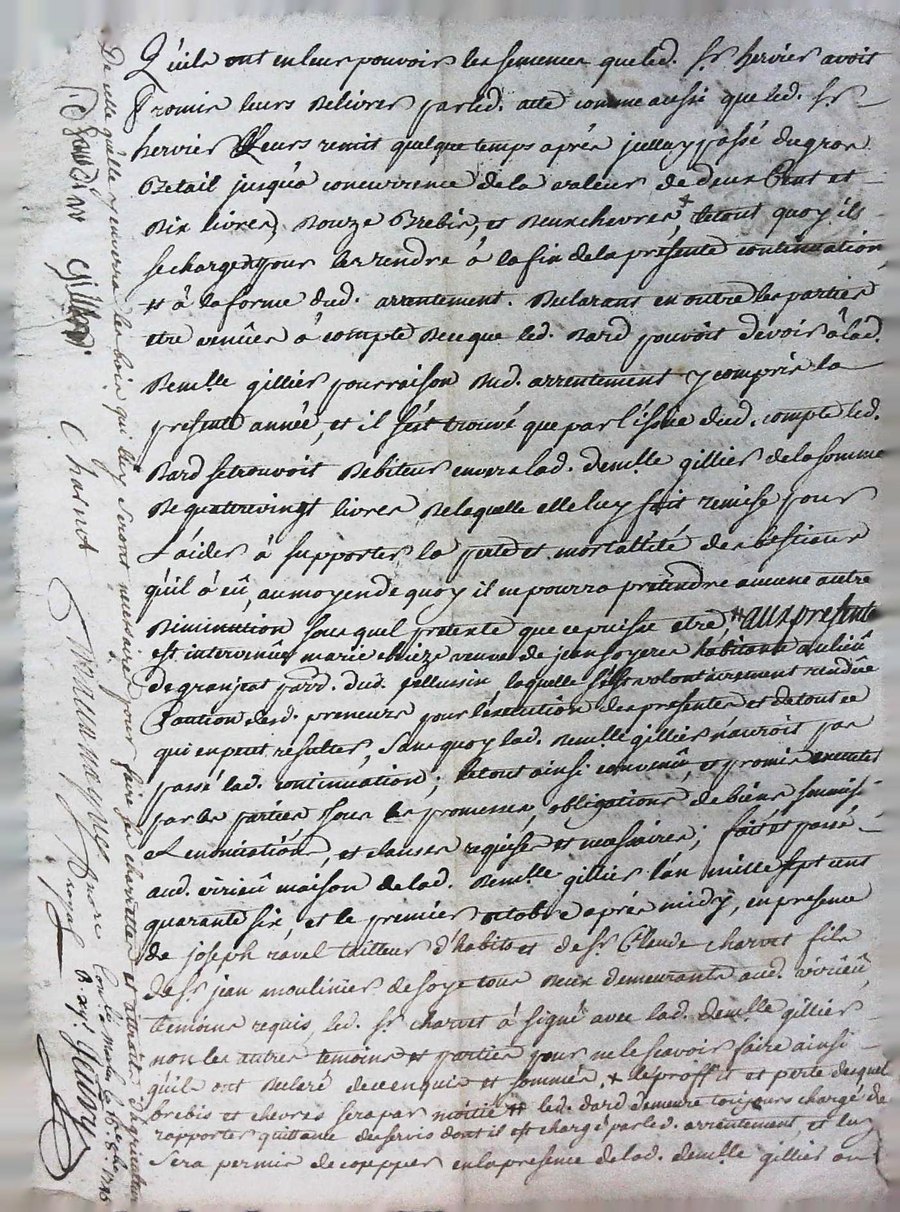 Qu'ils ont en leur pouvoir les semences que led. Sr hervier avoit
Promis leurs Delivrer par led. acte comme aussi que led. Sr
hervier Leurs remit quelque temps après jullay passé du gros
Betail jusqu'a concurrence de la valeur de deux Cent et
Dix livres, Douze Brebis, et Deux chevres + le tout quoy ils
se chargent pour les rendre à la fin de la présente continuation
et à la forme dud. arrentement. Declarant en outre les parties
etre venües à compte De ce que led. Dard pouvoit devoir à lad.
Demlle gillier pour raison Dud. arrentement y compris la
presente année, et il s'est trouvé que par l'issüe dud. compte led.
Dard se trouvoit Debiteur envers lad. demlle gillier de la somme
De quatrevingt livres De laquelle elle luy fait remise pour
L'aider à supporter la perte et mortallité des bestiaux
qu'il à eû, au moyen de quoy il ne pourra prétendre aucune autre
Diminution sous quel pretexte que ce puisse etre # aux presente
est intervenüe marie veuve de jean soyere habitante au lieü
de granjeat parr. dud. pellussin laquelle s'est volontairement rendüe
Caution desd. preneurs pour l'execution des presentes et de tout ce
qui en peut resulter, sans quoy lad. Demlle gillier n'auroit pas
passé lad. continuation; le tout ainsi convenû, et promis executer
par les parties sous les promesses, obligations de biens soumissi
Renonciations, et clauses requises et necessaires; fait et passé
aud. virieü maison de lad. Demlle gillier l'an mille sept cent
quarante six, et le premier octobre après midy, en presence
de joseph ravel tailleur d'habits et de Sr Claude charvet fils
de Sr jean moulinier de soye tous Deux demeurants aud. virieü,
temoins requis, led. Sr charvet à signé avec lad. demlle gillier
non les autres temoins et parties pour ne le scavoir faire ainsi
qu'ils ont Declaré de ce enquis et sommés, + le proffit et perte desquel
brebis et chevres sera par moitié # led. dard demeure toujours chargé de
rapporter quittance des servis dont il est chargé par led. arrentement, et luy
sera permis de coupper en la presence de lad. demlle gillier ou
De elle qu'elle y envera les bois qui luy seront necessaire pour faire ses charrettes et attrait d'agriculture
gillier
Charvet
notre
royal
Con.lé à le 15e 8bre 1746
R. xiij s.